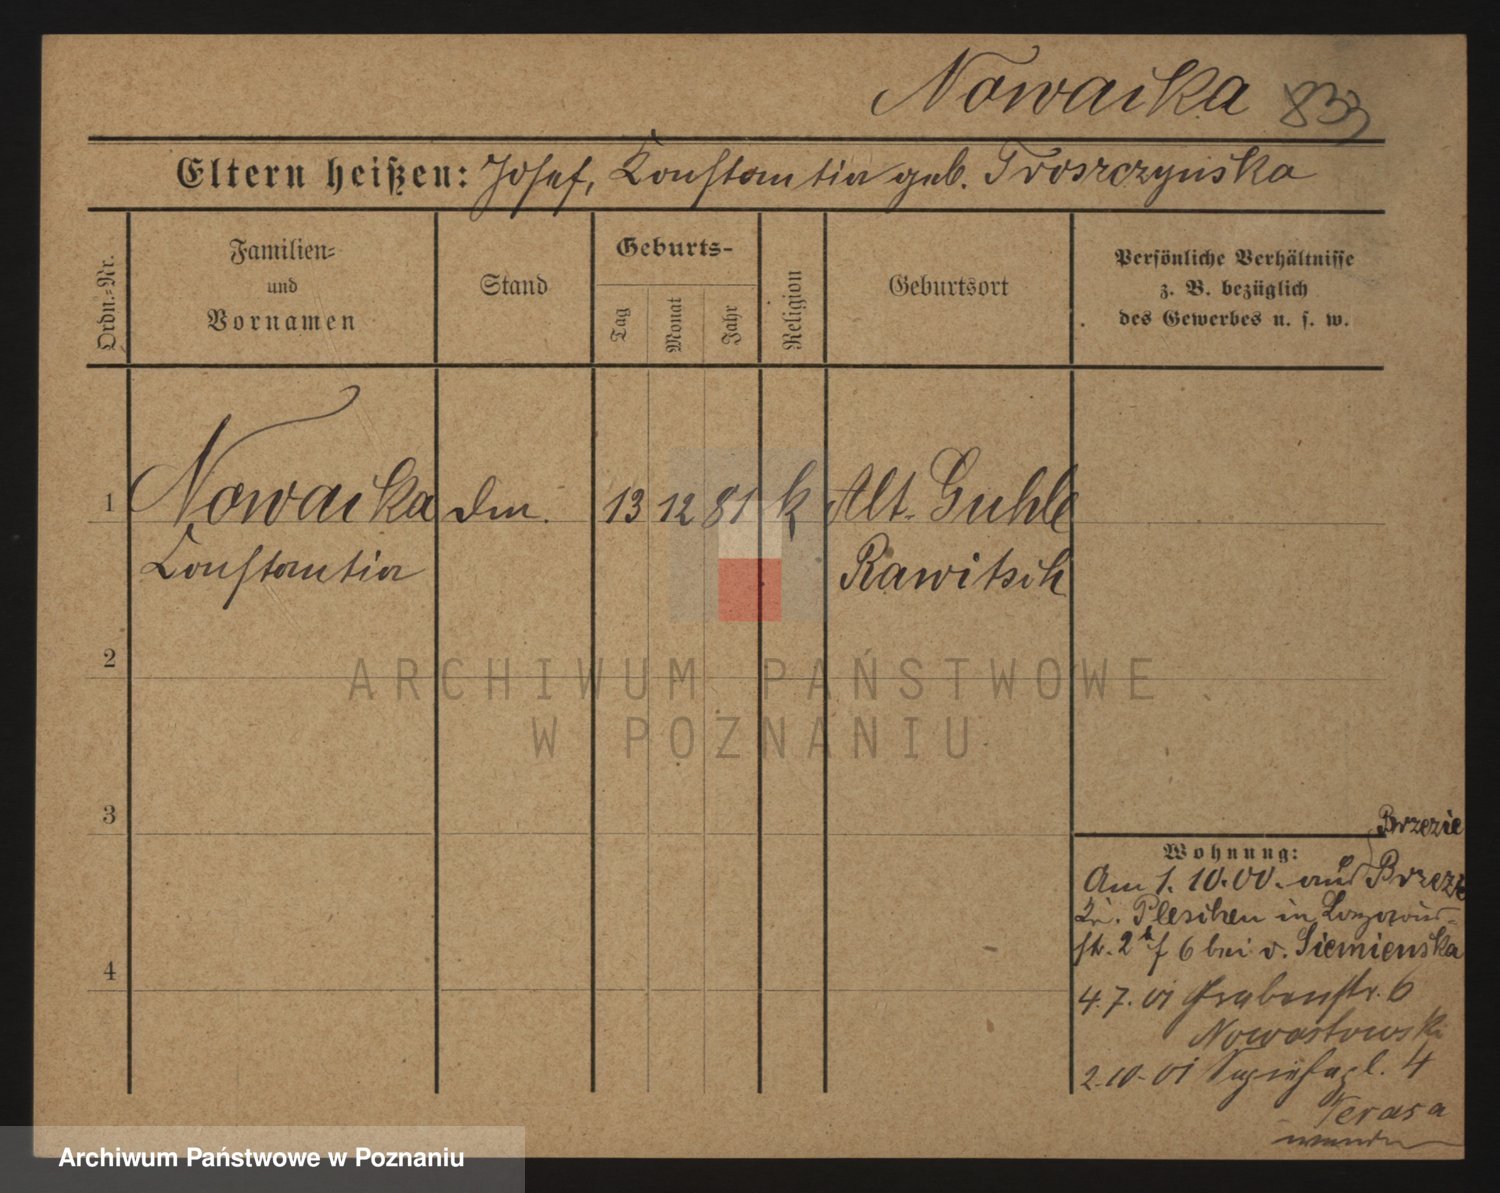 Nowaika 833
Eltern heißen: Josef, Konstantia geb. Troszczynska
Ordn.-Nr.
Familien-
und
Vornamen
Stand
Geburts-
Tag
Monat
Jahr
Religion
Geburtsort
Persönliche Verhältnisse
z. B. bezüglich
des Gewerbes u. s. w.
1 Nowaika Dm. 13 12 81 k Alt. Guhle
Konstantia Rawitsch
2
ARCHIWUM PAŃSTWOWE
W POZNANIU
3
Brzezie
Wohnung:
Am 1. 10.00. aus
Pleschen in
str. 2 6 bei v. Siemienska
4
4.7.01 Grabenstr. 6
Nowastowski
2.10.01 4
Terasa
Archiwum Państwowe w Poznaniu